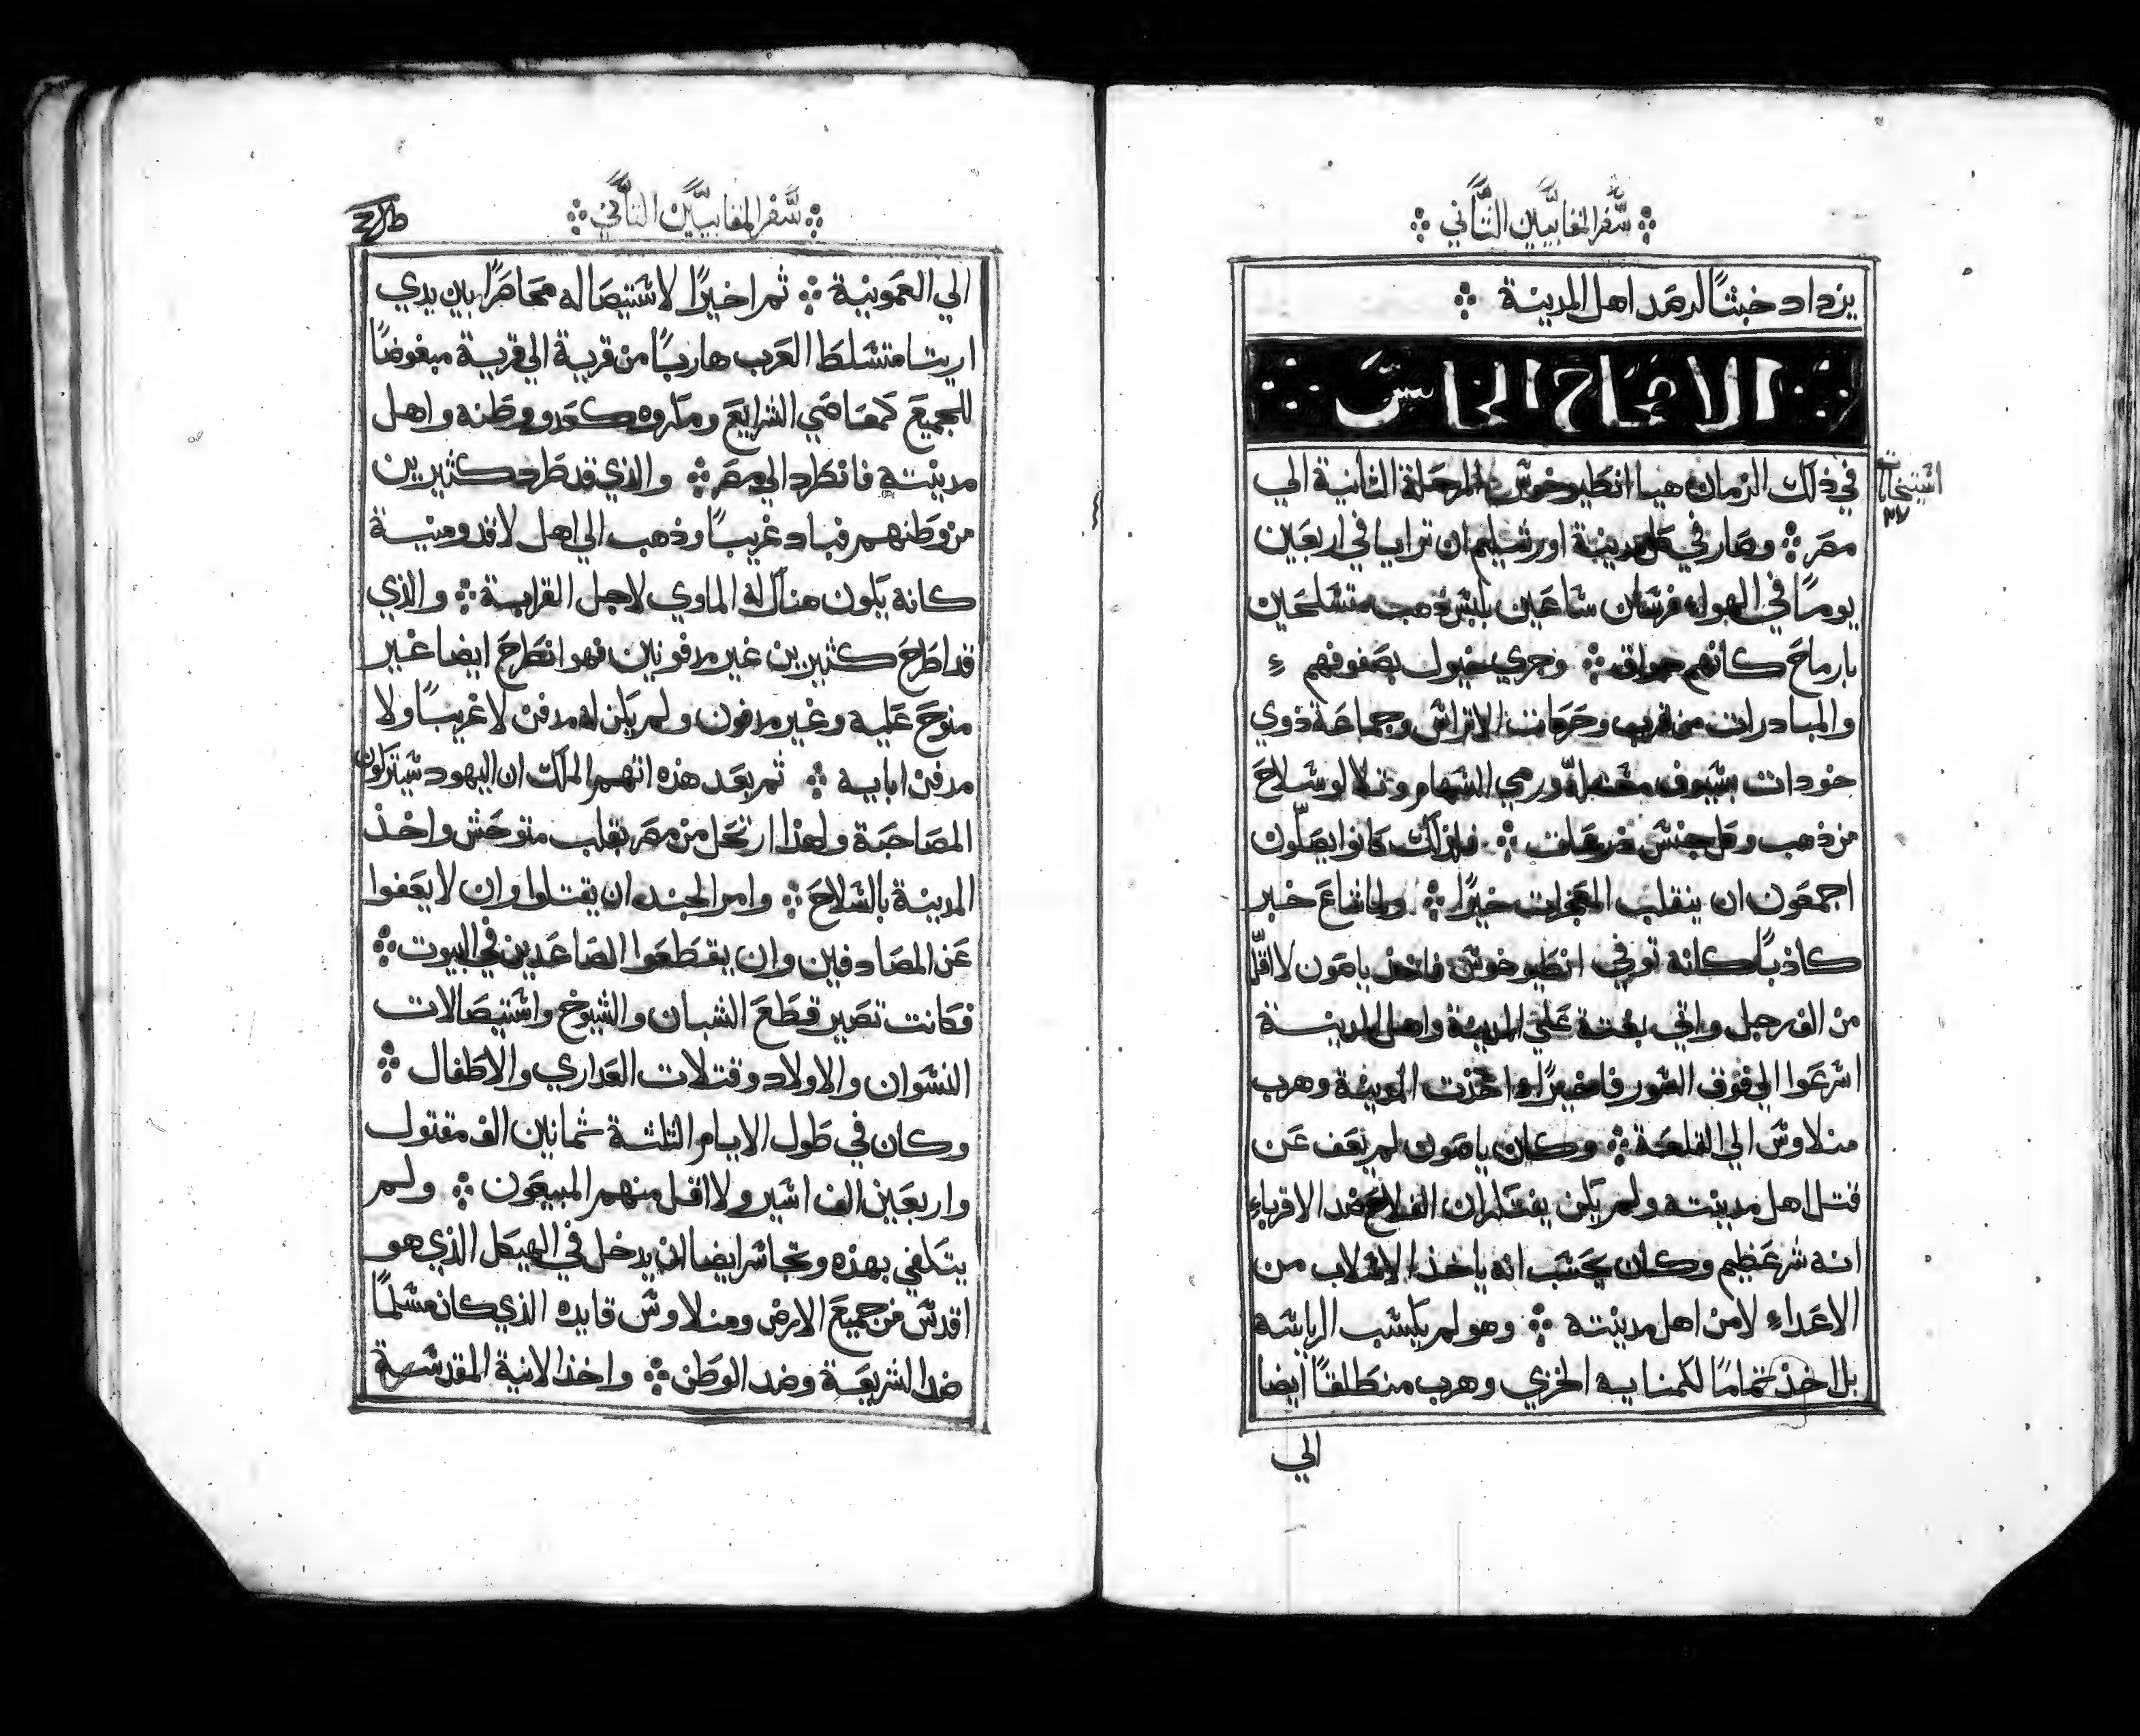 سفر المقابيين الثاني
يزداد خبثا لرصد اهل المدينة
الاصحاح الخامس
في ذلك الزمان هيا انطيوخوس المرحلة الثانية الي
مصر وصار في كل مدينة اورشليم ان ترايا في اربعين
يوما في الهواء فرسان ساعين بلبس ذهب متسلحين
بارماح كانهم جواق وجري خيول بصفوفهم
والمبادرات من قريب وحركات الاتراس وجماعة ذوي
خودات بسيوف ورمي السهام وتلالو سلاح
من ذهب وكل جنس فلذلك كانوا يصلون
اجمعون ان ينقلب خيرا ولما شاع خبر
كاذبا كانه توفي انطيوخوس فاخذ ياصون لا اقل
من الف رجل واتي بغتة علي المدينة واهل المدينة
اسرعوا الي فوق السور فاخيرا اخذت المدينة وهرب
منلاوس الي القلعة وكان ياصون لم يعف عن
قتل اهل مدينته ولم يكن يفتكر ان الفلاح ضد الاقرباء
انه شر عظيم وكان يحسب انه ياخذ الاسلاب من
الاعداء لا من اهل مدينته وهو لم يكسب الرياسة
بل اخذ تماما لكمنايه الخزي وهرب منطلقا ايضا
الي
اسيتخات
٣٧
سفر المقابيين الثاني
الي العمونية ثم اخيرا لاستيصاله محاصرا بين يدي
اريتا متسلط العرب هاربا من قرية الي قرية مبغوضا
للجميع كمعاصي الشرايع ومكروه كعدو وطنه واهل
مدينته فانطرد الي مصر والذي قد طرد كثيرين
من وطنهم فباد غريبا وذهب الي اهل لاقدومنية
كانه يكون هناك له الماوي لاجل القرابة والذي
قد اطرح كثيرين غير مدفونين فهو انطرح ايضا غير
منوح عليه وغير مدفون ولم يكن له مدفن لا غريبا ولا
مدفن ابايه ثم بعد هذه اتهم الملك ان اليهود سيتركون
المصاحبة ولهذا ارتحل من مصر بقلب متوحش واخذ
المدينة بالسلاح وامر الجند ان يقتلوا وان لا يعفوا
عن المصادفين وان يقطعوا الصاعدين في البيوت
فكانت تصير قطع الشبان والشيوخ واستيصالات
النسوان والاولاد وقتلات العداري والاطفال
وكان في طول الايام الثلثة ثمانين الف مقتول
واربعين الف اسير ولا اقل منهم المبيعون ولم
يتكفي بهذه وتجاسر ايضا ان يدخل في الهيكل الذي هو
اقدس من جميع الارض ومنلاوس قايده الذي كان مسلما
ضد الشريعة وضد الوطن واخذ الانية المقدسة